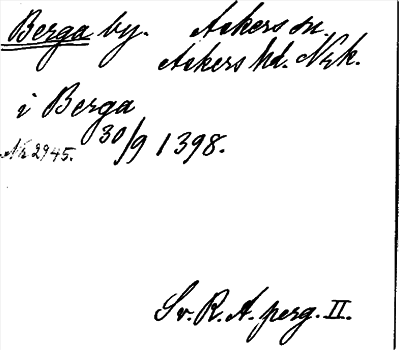 Berga by. Åkers sn.
Åkers hd. Nrk.
i Berga
Nr 2945. 30/9 1398.
Sv. R. A. perg. II.